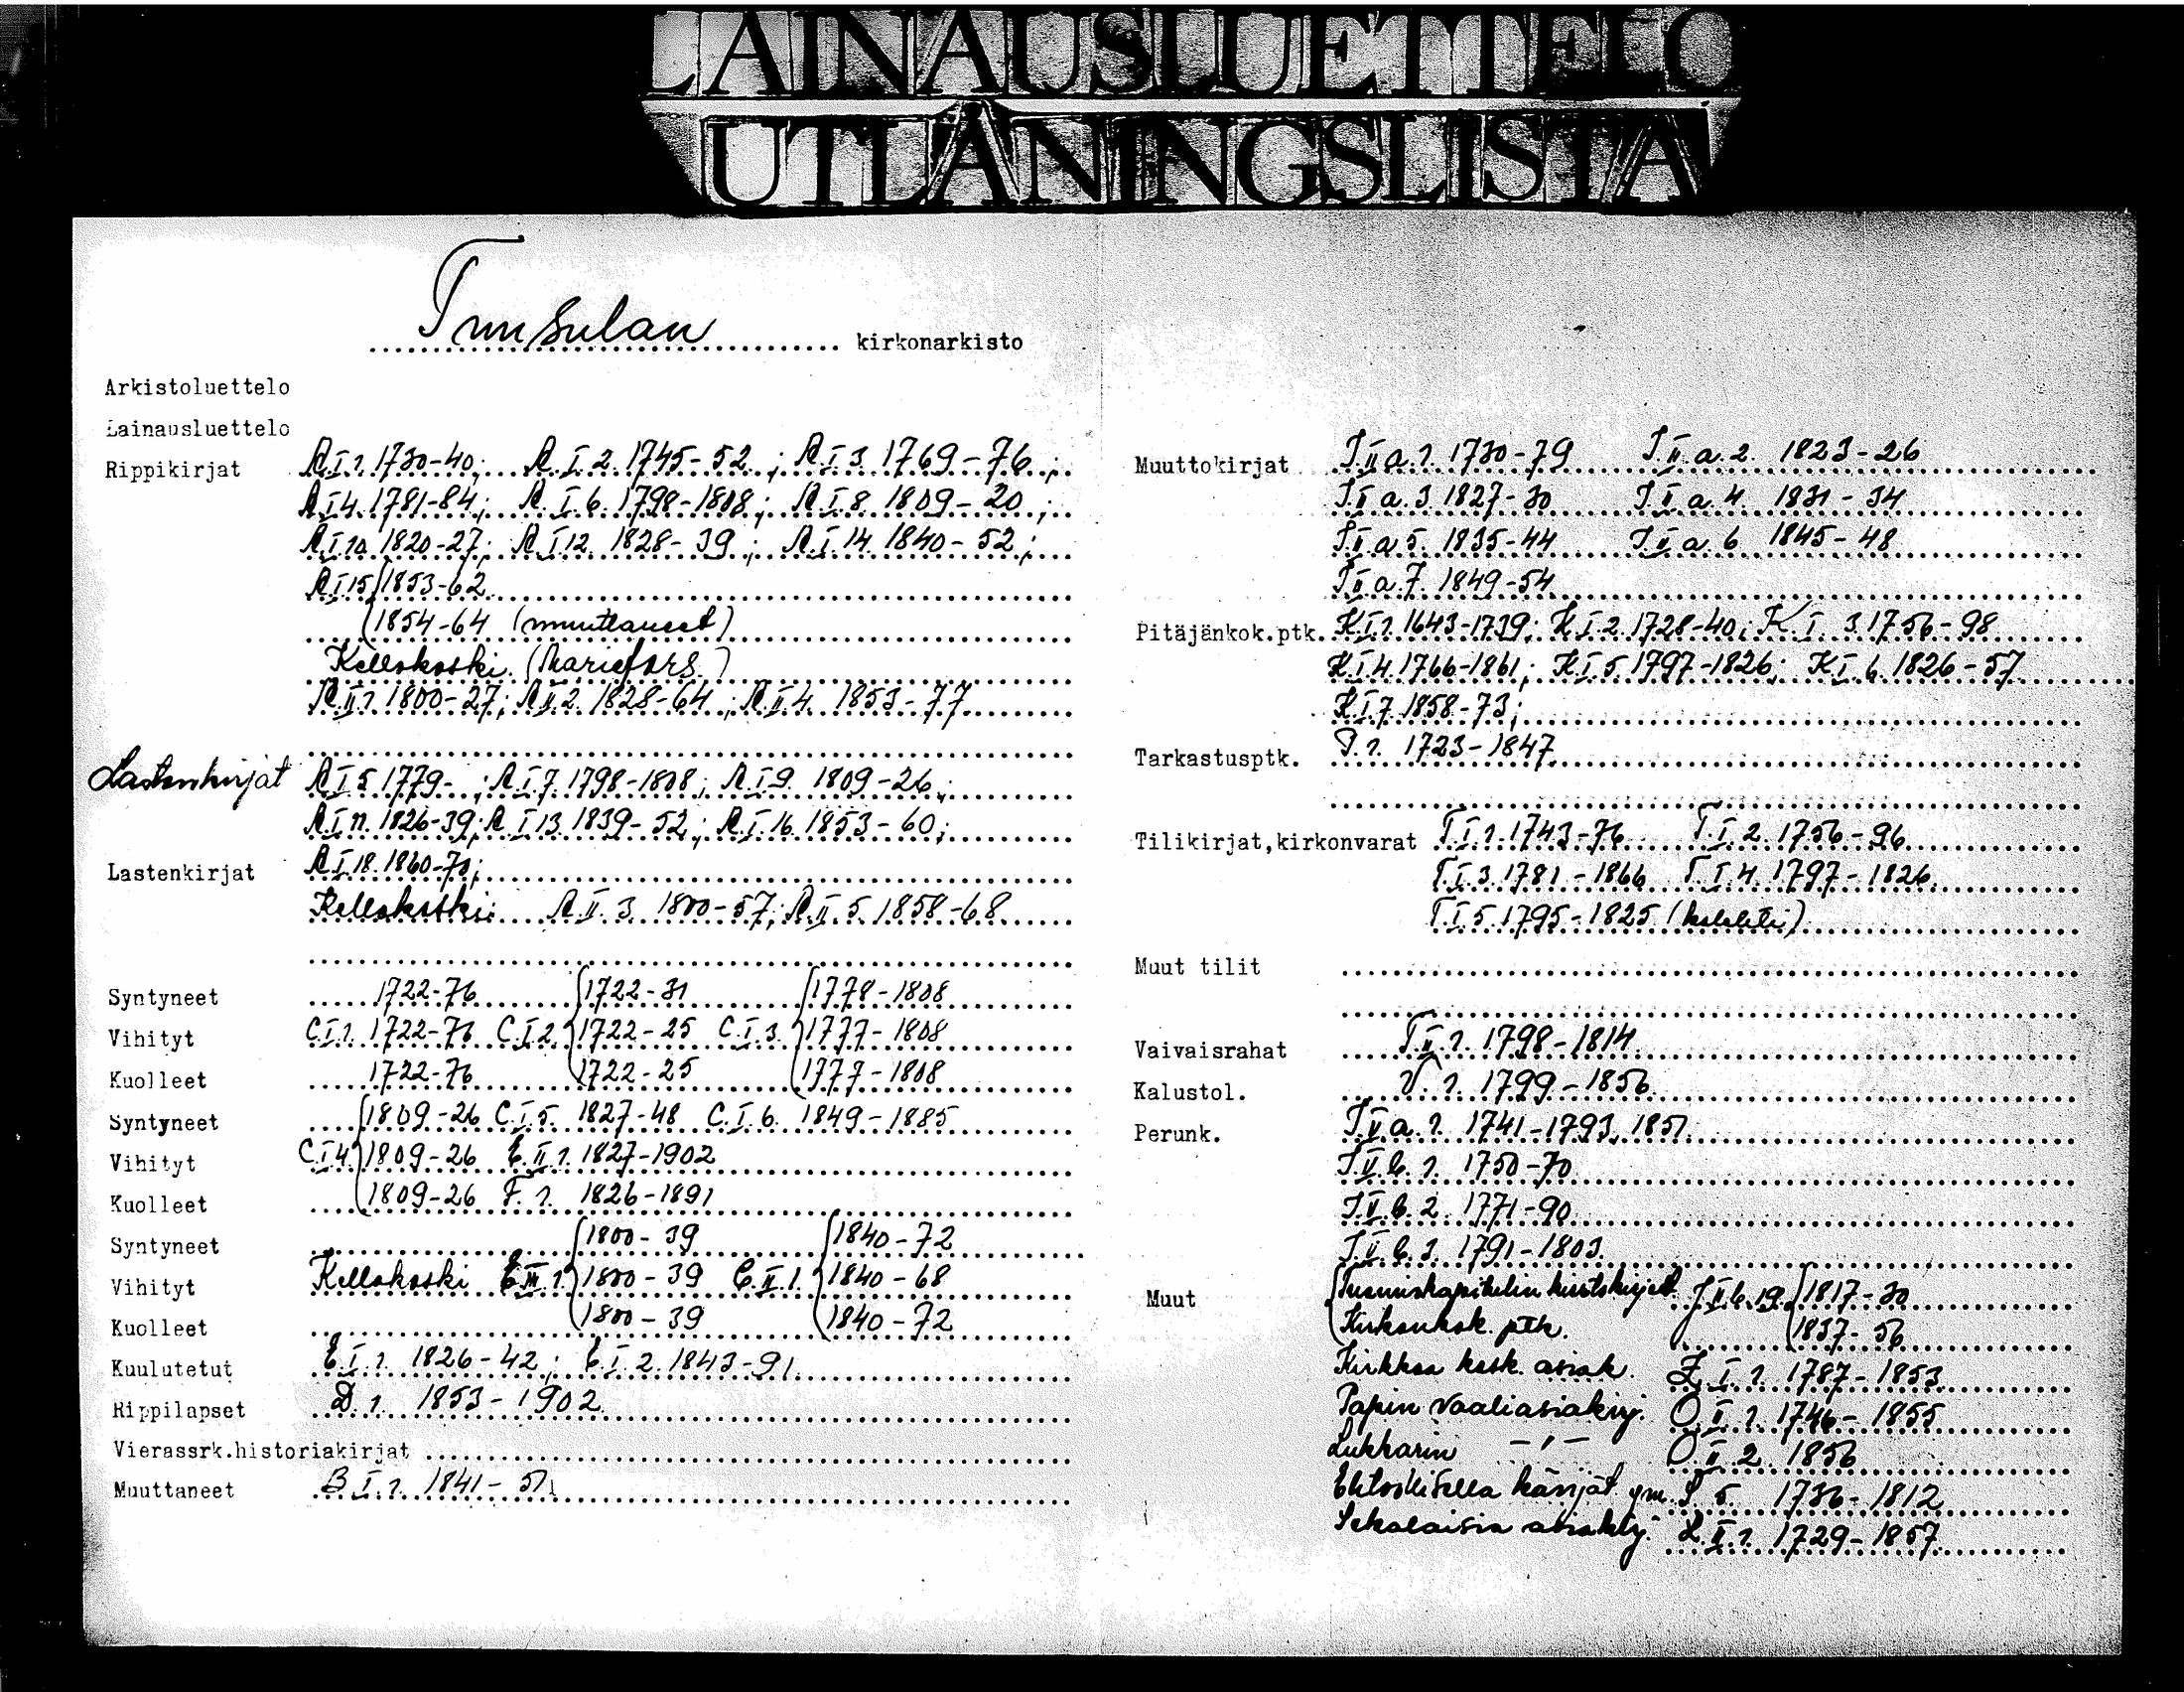 LAINAUSLUETTELO
UTLÅNINGSLISTA
Tuusulan kirkonarkisto
Arkistoluettelo
Lainausluettelo
Rippikirjat A.I.1. 1730-40; A.I.2. 1745-52; A.I.3. 1769-76;
A.I.4. 1781-84; A.I.6. 1798-1808; A.I.8. 1809-20;
A.I.10. 1820-27; A.I.12. 1828-39; A.I.14. 1840-52;
A.I.15 1853-62
1854-64 (muuttaneet)
Kellokoski (Mariefors)
A.II.1. 1800-27; A.II.2. 1828-64; A.II.4. 1853-77
Lastenkirjat A.I.5. 1779- ; A.I.7. 1798-1808; A.I.9. 1809-26;
A.I.11. 1826-39; A.I.13. 1839-52; A.I.16. 1853-60;
Lastenkirjat A.I.18. 1860-70;
Kellokoski: A.II.3. 1800-57; A.II.5. 1858-68
Syntyneet 1722-76 1722-31 1778-1808
Vihityt C.I.1. 1722-76 C.I.2. 1722-25 C.I.3. 1777-1808
Kuolleet 1722-76 1722-25 1777-1808
Syntyneet 1809-26 C.I.5. 1827-48 C.I.6. 1849-1885
Vihityt C.I.4. 1809-26 E.II.1. 1827-1902
Kuolleet 1809-26 F.1. 1826-1891
Syntyneet 1800-39 1840-72
Vihityt Kellokoski 1800-39 C.II.1. 1840-68
Kuolleet 1800-39 1840-72
Kuulutetut E.I.1. 1826-42; E.I.2. 1843-91
Rippilapset D.1. 1853-1902
Vierassrk.historiakirjat
Muuttaneet B.I.1. 1841-51
Muuttokirjat I.II.a.1. 1730-79 I.II.a.2. 1823-26
I.II.a.3. 1827-30 I.II.a.4. 1831-34
I.II.a.5. 1835-44 I.II.a.6. 1845-48
I.II.a.7. 1849-54
Pitäjänkok.ptk. K.I.1. 1643-1739; K.I.2. 1728-40; K.I.3. 1756-98
K.I.4. 1766-1861; K.I.5. 1797-1826; K.I.6. 1826-57
K.I.7. 1858-73;
Tarkastusptk. P.1. 1723-1847
Tilikirjat,kirkonvarat T.I.1. 1743-76 T.I.2. 1756-96
T.I.3. 1781-1866 T.I.4. 1797-1826
T.I.5. 1795-1825 (kolehti)
Muut tilit
Vaivaisrahat T.II.1. 1798-1814
Kalustol. V.1. 1799-1856
Perunk. 1741-1793, 1851
1750-70
1771-90
1791-1803
Muut Tuomiokapitulin kiertokirjeet 1817-30
Kirkonkok. ptk. 1837-56
Kirkkoa kosk. asiak. 1787-1853
Papin vaaliasiakirj. O.II.1. 1746-1855
Lukkarin -"- O.II.2. 1856
käräjät ym. 1736-1812
Sekalaisia asiakirj. 1729-1857